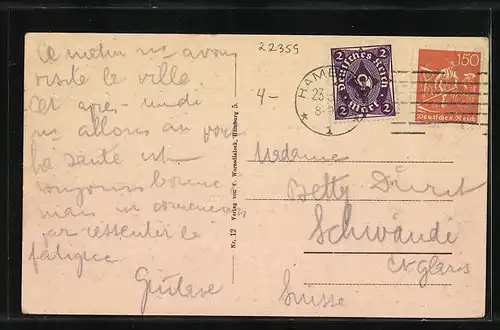 22359
4-
Ce matin ns avons
visité la ville.
Cet après-midi
ns allons au
La santé est
toujours bonne
mais ns commençons
ressentir la
fatigue
Gustave
Nr. 12 Verlag von C. Worzedialeck, Hamburg 5.
HAMBURG
23.
8-9
1
2 2
Deutsches Reich
2 Mark 2
150
Deutsches Reich
Madame
Betty Dürst
Schwändi
Ct Glaris
Suisse